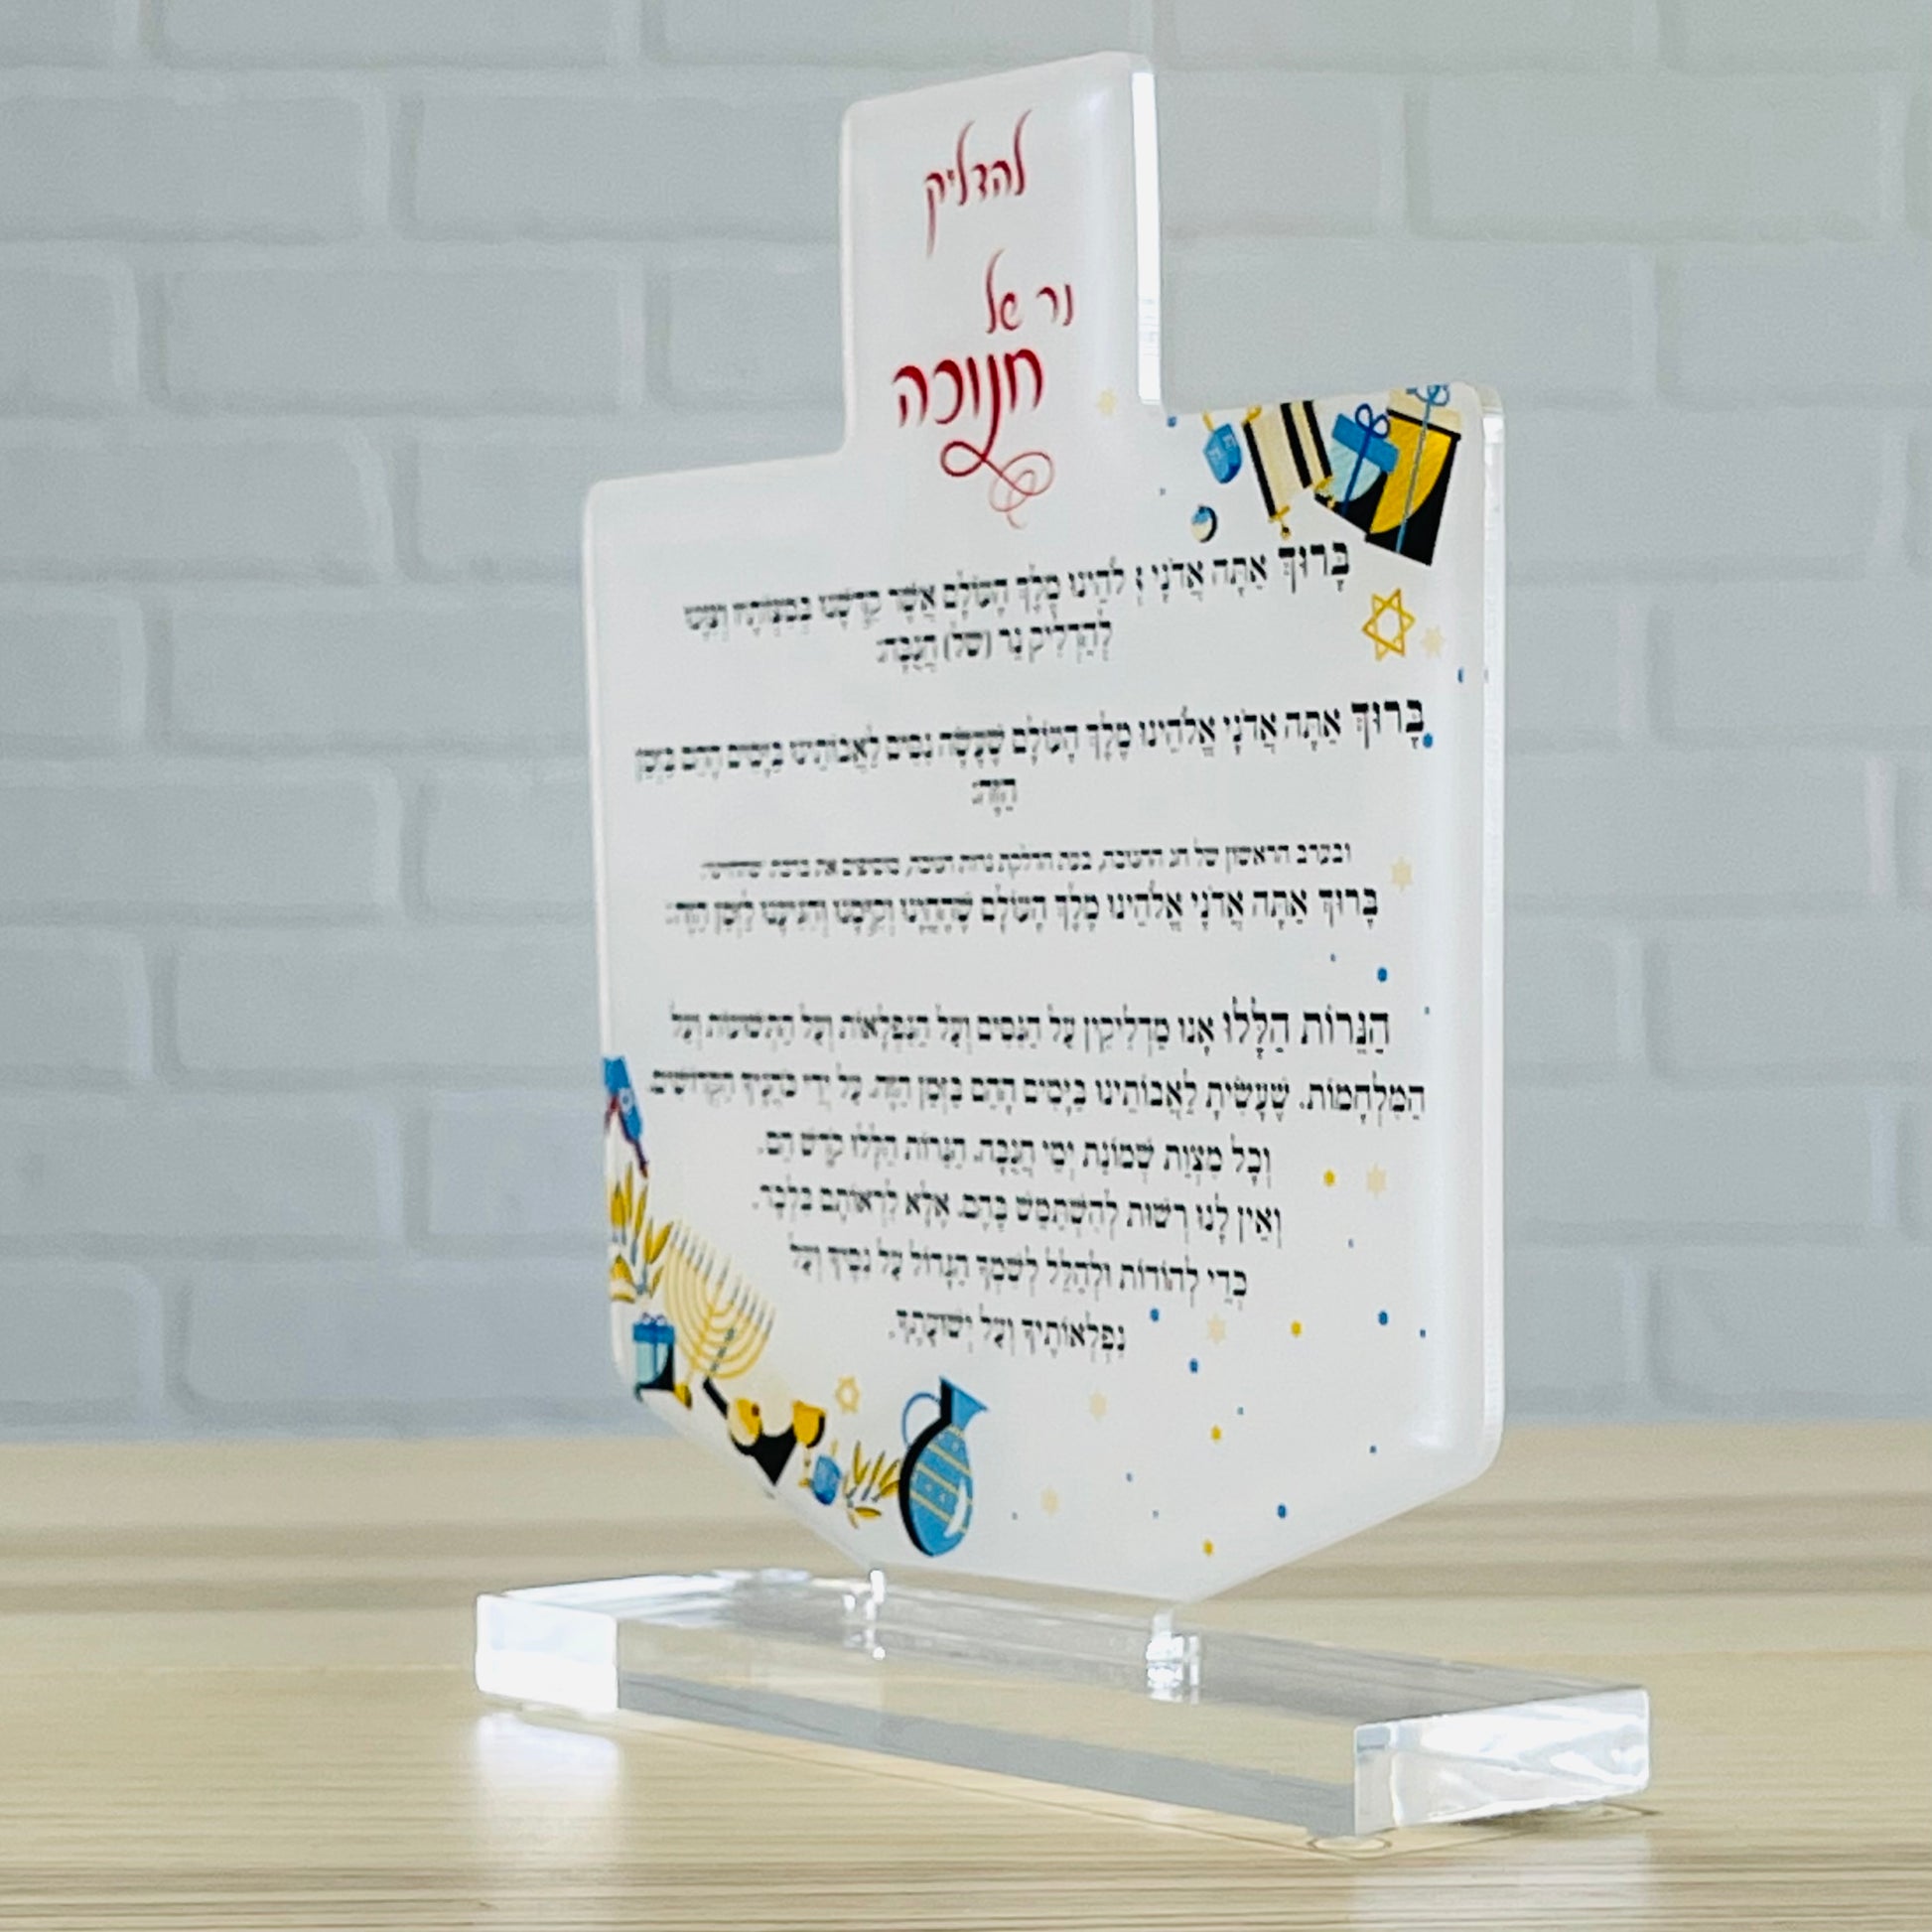 להדליק
נר של
חנוכה
בָּרוּךְ אַתָּה אֲדֹנָי אֱ לֹהֵינוּ מֶלֶךְ הָעוֹלָם אֲשֶׁר קִדְּשָׁנוּ בְּמִצְוֹתָיו וְצִוָּנוּ
לְהַדְלִיק נֵר (שֶׁל) חֲנֻכָּה:
בָּרוּךְ אַתָּה אֲדֹנָי אֱלֹהֵינוּ מֶלֶךְ הָעוֹלָם שֶׁעָשָׂה נִסִּים לַאֲבוֹתֵינוּ בַּיָּמִים הָהֵם בַּזְּמַן
הַזֶּה:
ובערב הראשון של חג החנוכה, בעת הדלקת נרות חנוכה, מוסיפים את ברכת
בָּרוּךְ אַתָּה אֲדֹנָי אֱלֹהֵינוּ מֶלֶךְ הָעוֹלָם שֶׁהֶחֱיָנוּ וְקִיְּמָנוּ וְהִגִּיעָנוּ לַזְּמַן הַזֶּה:
הַנֵּרוֹת הַלָּלוּ אָנוּ מַדְלִיקִין עַל הַנִּסִּים וְעַל הַנִּפְלָאוֹת וְעַל הַתְּשׁוּעוֹת וְעַל
הַמִּלְחָמוֹת. שֶׁעָשִׂיתָ לַאֲבוֹתֵינוּ בַּיָּמִים הָהֵם בַּזְּמַן הַזֶּה. עַל יְדֵי כֹּהֲנֶיךָ הַקְּדוֹשִׁים.
וְכָל מִצְוַת שְׁמוֹנַת יְמֵי חֲנֻכָּה. הַנֵּרוֹת הַלָּלוּ קֹדֶשׁ הֵם.
וְאֵין לָנוּ רְשׁוּת לְהִשְׁתַּמֵּשׁ בָּהֶם. אֶלָּא לִרְאוֹתָם בִּלְבָד.
כְּדֵי לְהוֹדוֹת וּלְהַלֵּל לְשִׁמְךָ הַגָּדוֹל עַל נִסֶּיךָ וְעַל
נִפְלְאוֹתֶיךָ וְעַל יְשׁוּעָתֶךָ.